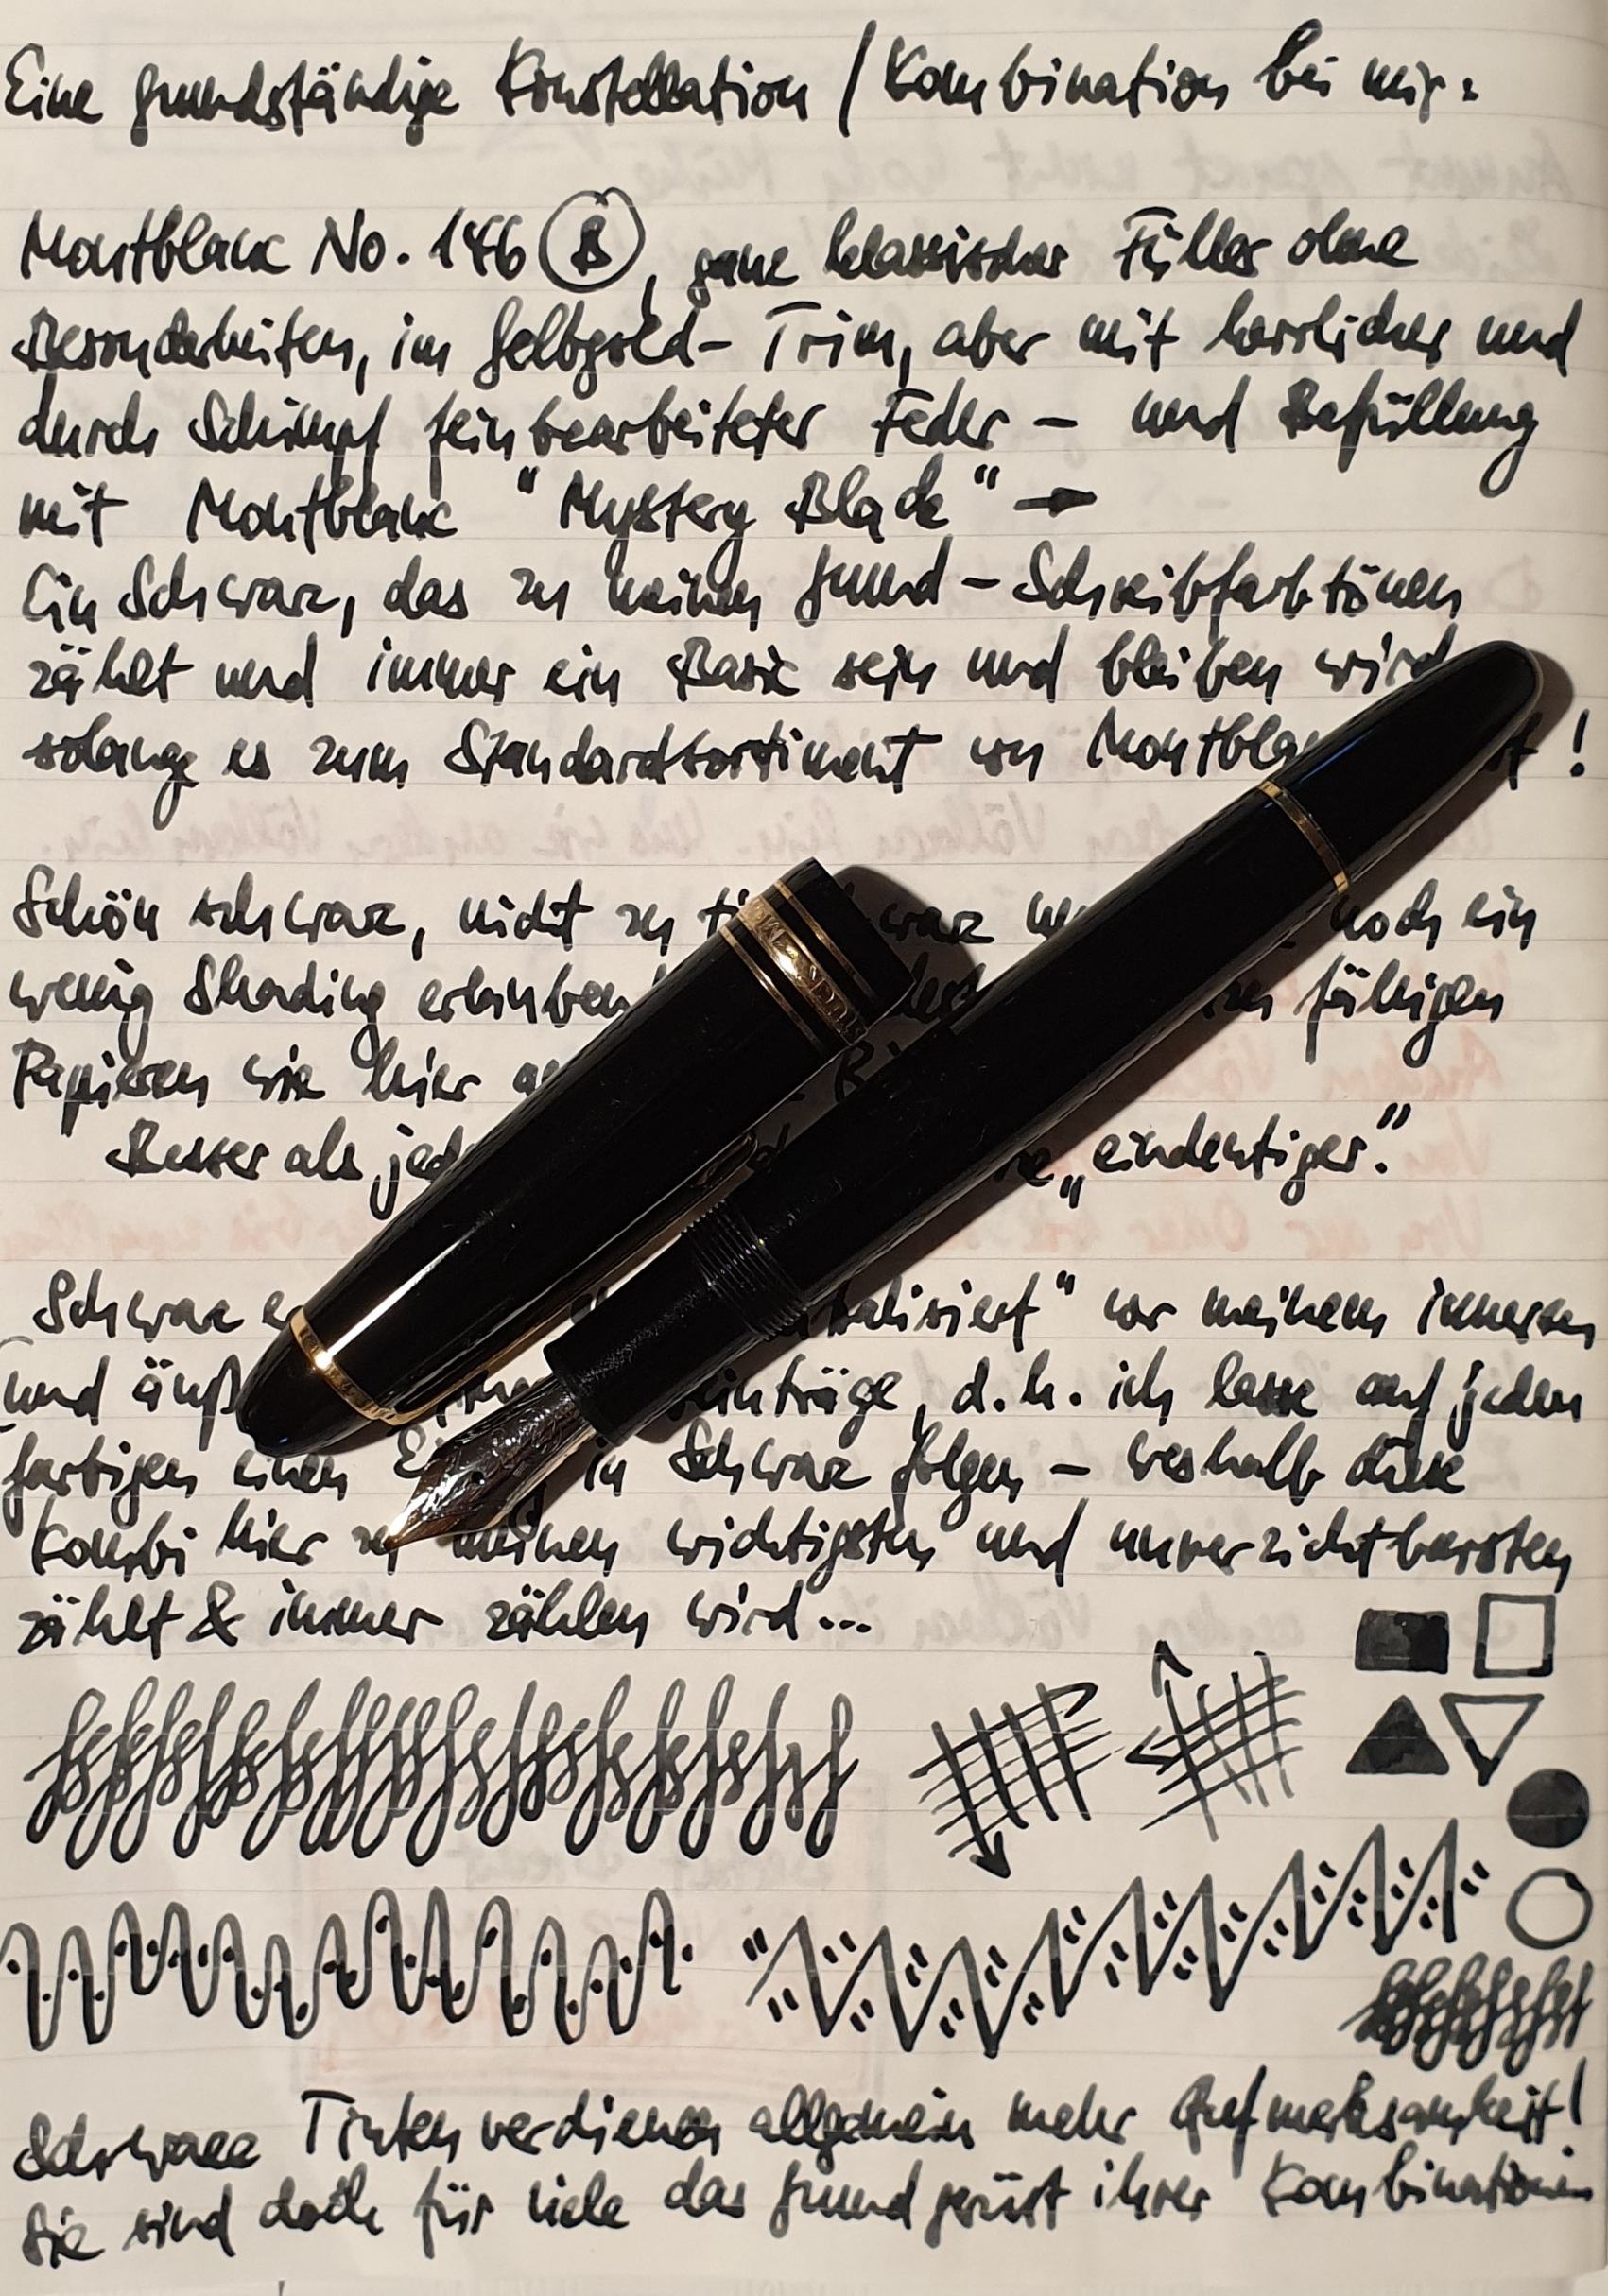 Eine grundständige Konstellation / Kombination bei mir:
Montblanc No. 146 B, ganz klassischer Füller ohne
Besonderheiten, im Gelbgold-Trim, aber mit herrlicher und
durch Schimpf feinbearbeiteter Feder – und Befüllung
mit Montblanc "Mystery Black" –
Ein Schwarz, das zu meinen Grund-Schreibfarbtönen
zählt und immer ein Basic sein und bleiben wird
solange es zum Standardsortiment von Montblanc !
Schön schwarz, nicht zu noch ein
wenig Shading erlauben fähigen
Papieren wie hier
Besser als „eindeutiger."
Schwarz vor meinem inneren
und einträge, d.h. ich lasse auf jeden
farbigen einen in Schwarz folgen – weshalb diese
Kombi hier zu meinen wichtigsten und unverzichtbarsten
zählt & immer zählen wird...
Schwarze Tinten verdienen allgemein mehr Aufmerksamkeit!
Sie sind doch für viele das Grundgerüst ihrer Kombinationen